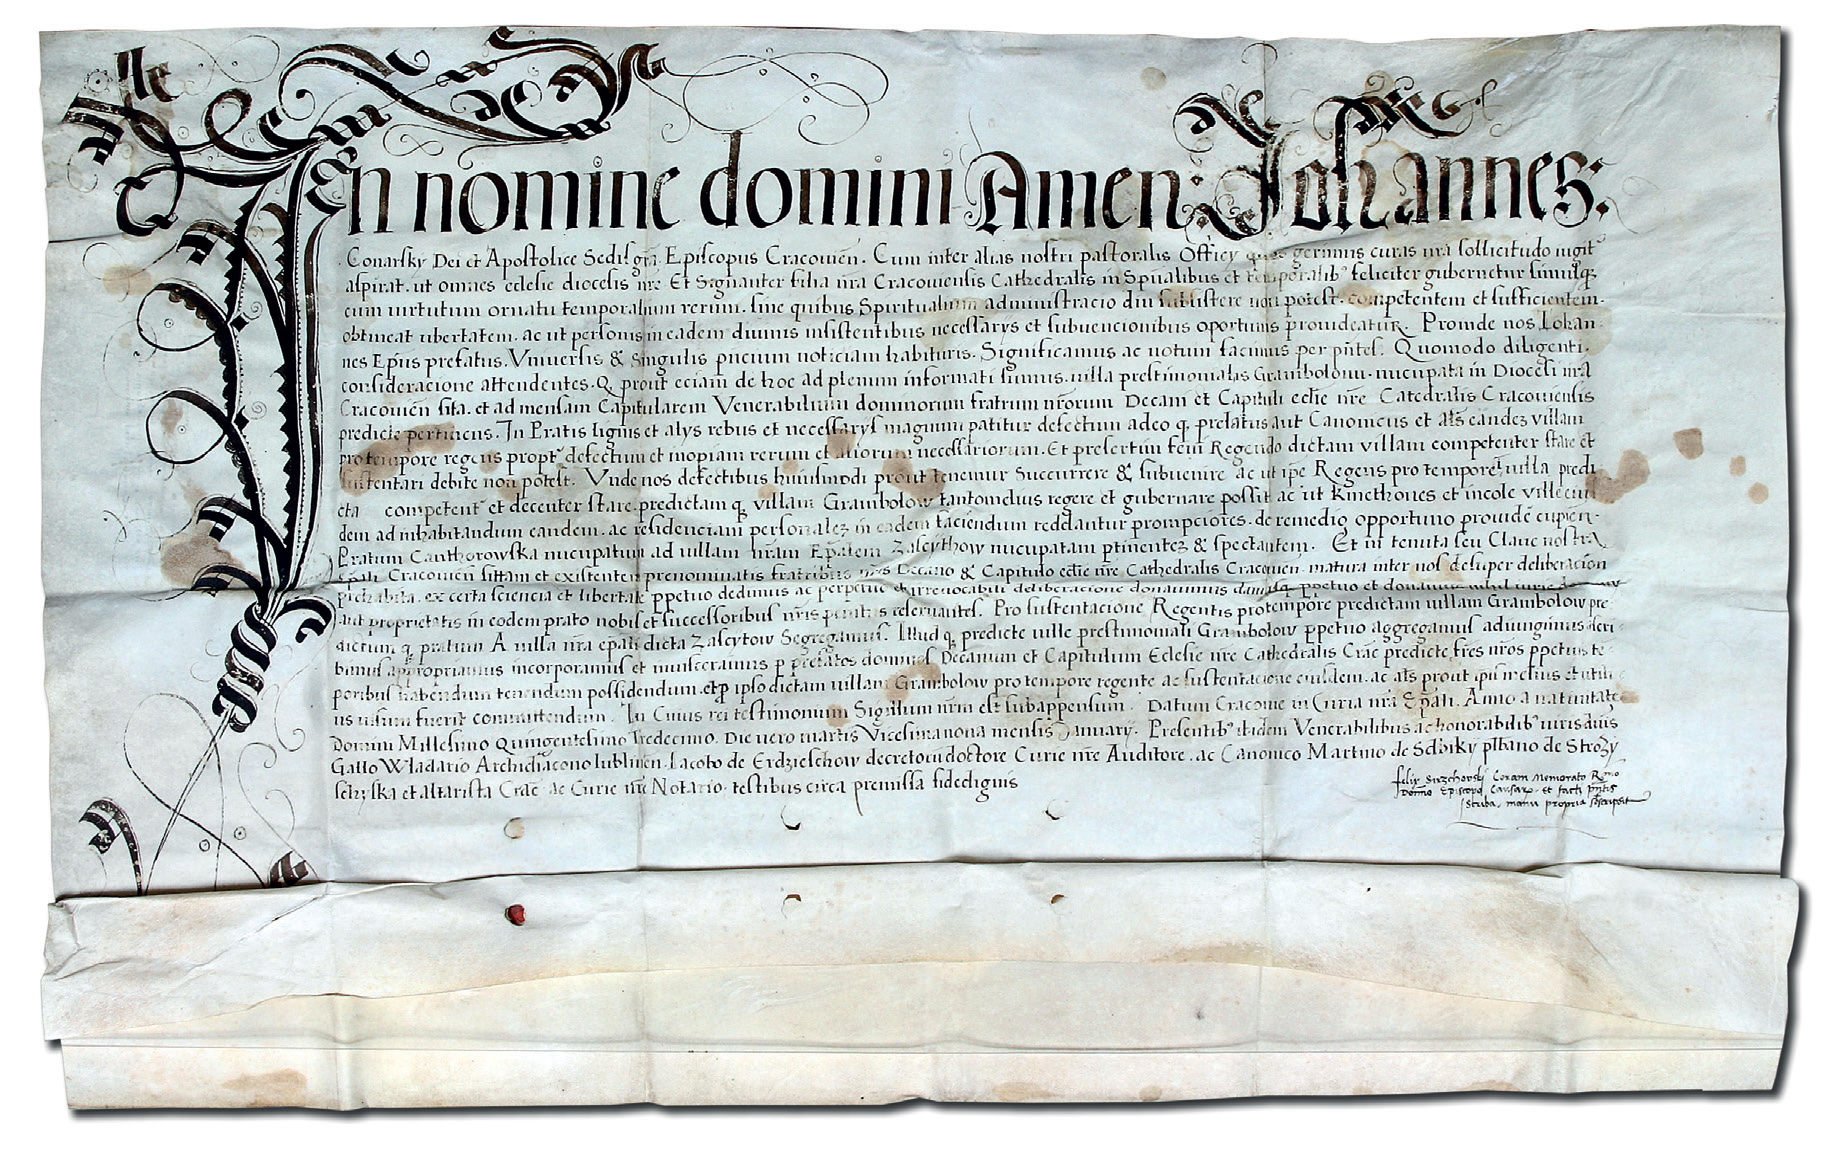 In nomine domini Amen: Johannes:
Conarsky Dei et Apostolice Sedis gra Episcopus Cracouien. Cum inter alias nostri pastoralis Officij quas gerimus curas nra sollicitudo uigit
aspirat. ut omnes eclesie diocesis nre Et Signanter filia nra Cracouiensis Cathedralis in Spualibus et temporalib feliciter gubernetur simulq
cum uirtutum ornatu temporalium rerum. sine quibus Spiritualium administracio diu subsistere non potest. competentem et sufficientem.
obtineat ubertatem. ac ut personis in eadem diuinis insistentibus necessarys et subuencionibus oportunis prouideatur. Proinde nos Johan
nes Epus prefatus. Vniuersis & Singulis pncium noticiam habituris. Significamus ac notum facimus per pntes. Quomodo diligenti.
consideracione attendentes. Q prout eciam de hoc ad plenum informati sumus. uilla prestimonialis Grambolow. nucupata in Diocesi nra
Cracouien sita. et ad mensam Capitularem Venerabilium dominorum fratrum nrorum Decani et Capituli eclie nre Catedralis Cracouiensis
predicte pertinens. In Pratis lignis et alys rebus et necessarys magnum patitur defectum adeo q prelatus aut Canonicus et als eandez uillam
pro tempore regens propt defectum et inopiam rerum et aliorum necessariorum. Et presertim feni Regendo dictam uillam competenter stare et
sustentari debite non potest. Vnde nos defectibus huiusmodi prout tenemur Succurrere & subuenire ac ut ipse Regens pro tempore uilla predi
cta competent et decenter stare. predictam q uillam Grambolow tantomdius regere et gubernare possit ac ut Kmethones et incole uille eius
dem ad inhabitandum eandem. ac residenciam personalez in eadem faciendum reddantur prompciores. de remedio opportuno prouide cupien.
Pratum Canthorowska nucupatum ad uillam nram Epalem Zascythow nucupatam ptinentez & spectantem. Et in tenuta seu Claue nostra
Epali Cracouien sittam et existenten prenominatis fratribus nris Decano & Capitulo eclie nre Cathedralis Cracouien. matura inter nos desuper deliberacion
prehabita. ex certa sciencia et libertate ppetuo dedimus ac perpetue et irreuocabili deliberacione donauimus damusq ppetuo et donamus nihil iuris
aut proprietatis in eodem prato nobis et successoribus nris reseruantes. Pro sustentacione Regentis pro tempore predictam uillam Grambolow pre
dictum q pratum A uilla nra epali dicta Zascytow Segregamus. Illud q predicte uille prestimoniali Grambolow ppetuo aggregamus adiungimus
bimus appropriamus incorporamus et inusceramus p prefatos dominos Decanum et Capitulum Eclesie nre Cathedralis Crac predicte fres nros ppetuis te
poribus habendum tenendum possidendum. et p ipso dictam uillam Grambolow pro tempore regente ac sustentacione eiusdem. ac als prout ipsi melius et utili
us uisum fuerit committendum. In Cuius rei testimonium Sigillum nrm est subappensum. Datum Cracouie in Curia nra Epali. Anno a natiuitate
Domini Millesimo Quingentesimo Tredecimo. Die uero martis Vicesima nona mensis January. Presentib itidem Venerabilibus ac honorabilib uiris dnis
Gallo Wladario Archidiacono lublinen. Iacobo de Erdzieschow decretorum doctore Curie nre Auditore. ac Canonico Martino de Sdbiky plbano de Strozy
schyska et altarista Crac ac Curie nre Notario. testibus circa premissa fidedignis
felix Srzechowski Coram Memorato Rmo
Domino Episcopo Causarum et facti pntis
Scriba, manu propria scripsit